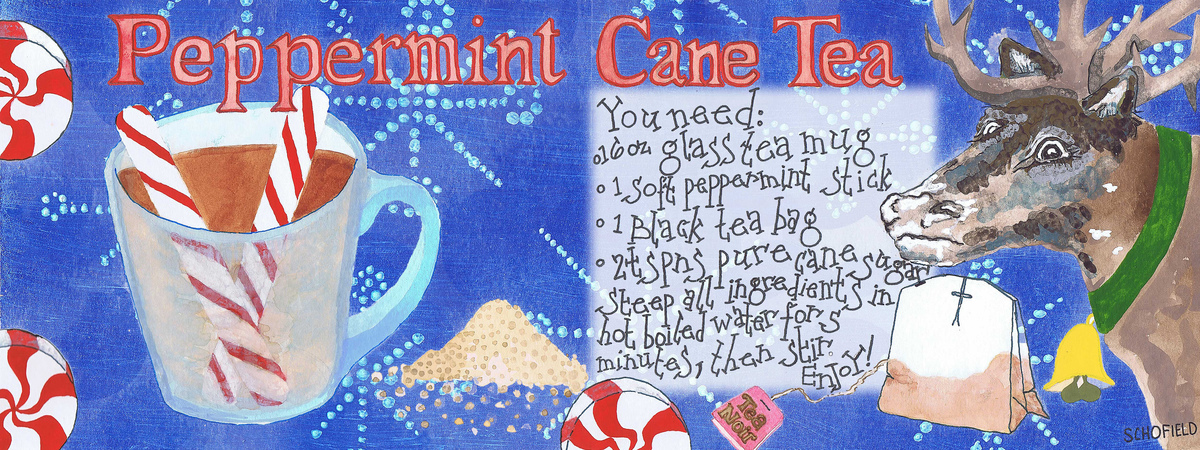 Peppermint Cane Tea
You need:
o 16 oz glass tea mug
o 1 Soft peppermint stick
o 1 Black tea bag
o 2tspns pure cane sugar
Steep all ingredients in
hot boiled water for 5
minutes, then stir.
Enjoy!
Tea
Noir
SCHOFIELD